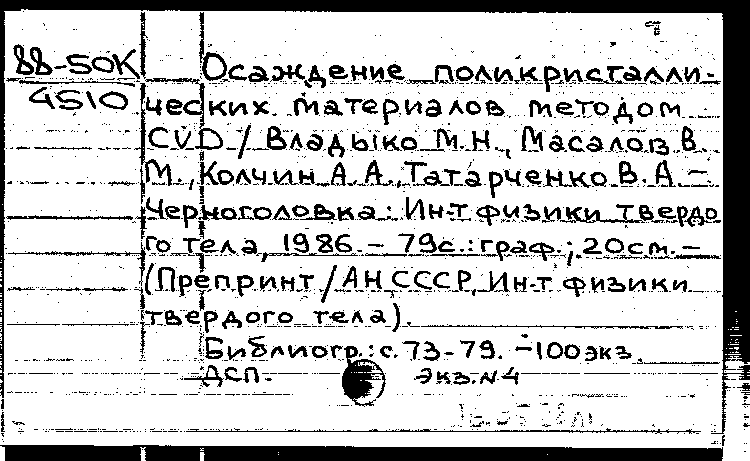 88-50К Осаждение поликристалли-
4510 ческих материалов методом
CVD / Владыко М.Н., Масалов В.
М., Колчин А.А., Татарченко В.А. –
Черноголовка: Ин-т физики твердо
го тела, 1986. – 79с.: граф.; 20см. –
(Препринт / АН СССР, Ин-т физики
твердого тела).
Библиогр.: с. 73-79. – 100 экз.
ДСП. экз. N4